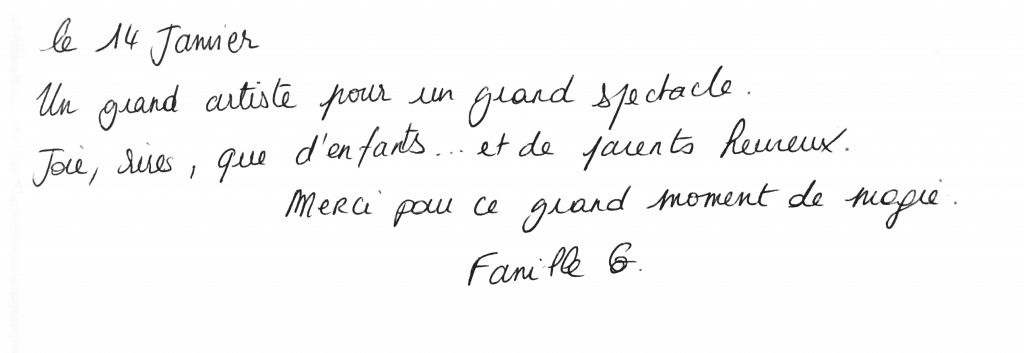 le 14 Janvier
Un grand artiste pour un grand spectacle.
Joie, rires, que d'enfants... et de parents heureux.
Merci pour ce grand moment de magie.
Famille G.